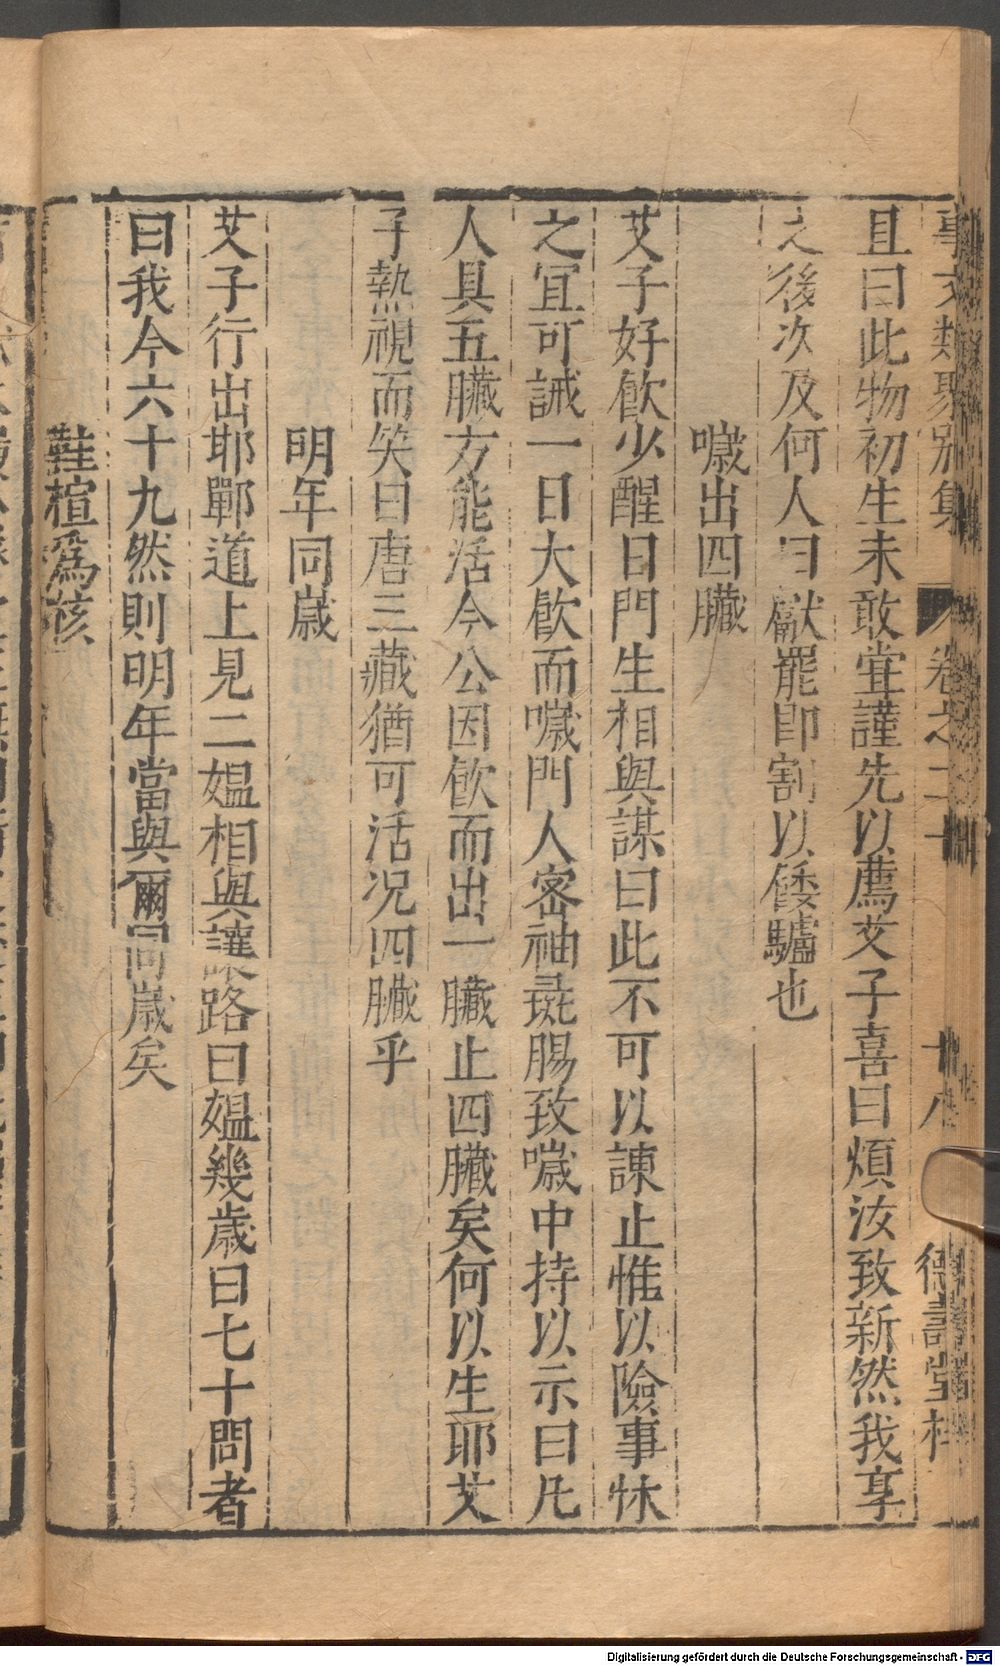 事文類聚別集 卷之二十 十八 德壽堂梓
且曰此物初生未敢嘗謹先以薦艾子喜曰煩汝致新然我享
之後次及何人曰獻罷即割以餧驢也
噦出四臟
艾子好飲少醒日門生相與謀曰此不可以諫止惟以險事怵
之冝可誡一日大飲而噦門人密袖彘腸致噦中持以示曰凡
人具五臟方能活今公因飲而出一臟止四臟矣何以生耶艾
子熟視而笑曰唐三藏猶可活况四臟乎
明年同歲
艾子行出邯鄲道上見二媼相與讓路曰媼幾歲曰七十問者
曰我今六十九然則明年當與爾同歲矣
鞋楦爲核
Digitalisierung gefördert durch die Deutsche Forschungsgemeinschaft - DFG